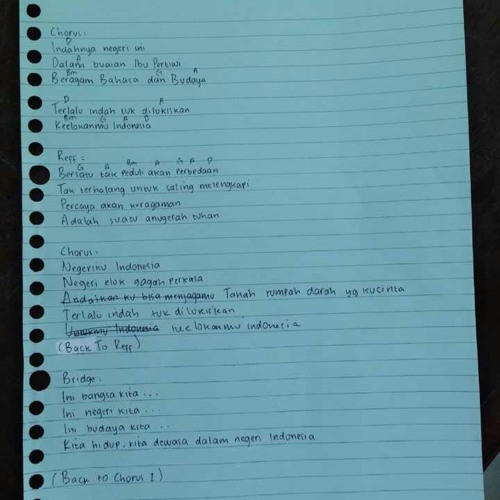 Chorus:
D
Indahnya negeri ini
A
Dalam buaian Ibu Pertiwi
Bm G A
Beragam Bahasa dan Budaya
D A
Terlalu indah tuk dilukiskan
Bm G A D
Keelokanmu Indonesia
Reff:
G A Bm A G A D
Bersatu tak peduli akan perbedaan
Tak terhalang untuk saling melengkapi
Percaya akan keragaman
Adalah suatu anugerah tuhan
Chorus:
Negeriku Indonesia
Negeri elok gagah perkasa
Andaikan ku bisa menjagamu Tanah tumpah darah yg kucinta
Terlalu indah tuk dilukiskan
Untukmu Indonesia keelokanmu indonesia
(Back To Reff)
Bridge:
Ini bangsa kita...
Ini negeri kita...
Ini budaya kita...
Kita hidup, kita dewasa dalam negeri Indonesia
(Back to Chorus 1)